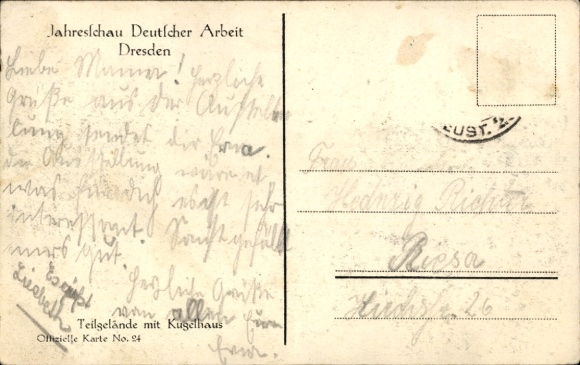 Jahresschau Deutscher Arbeit
Dresden
Liebe Mama! herzliche
Grüße aus der Ausstel
lung sendet dir Erna.
die Ausstellung wäre et
was für dich echt sehr
interessant. Sonst gefäll
mers gut.
Herzliche Grüße
von allen Eure
Erna.
Teilgelände mit Kugelhaus
Offizielle Karte No. 24
EUST. 2
Frau
Hedwig Richter
Riesa
26